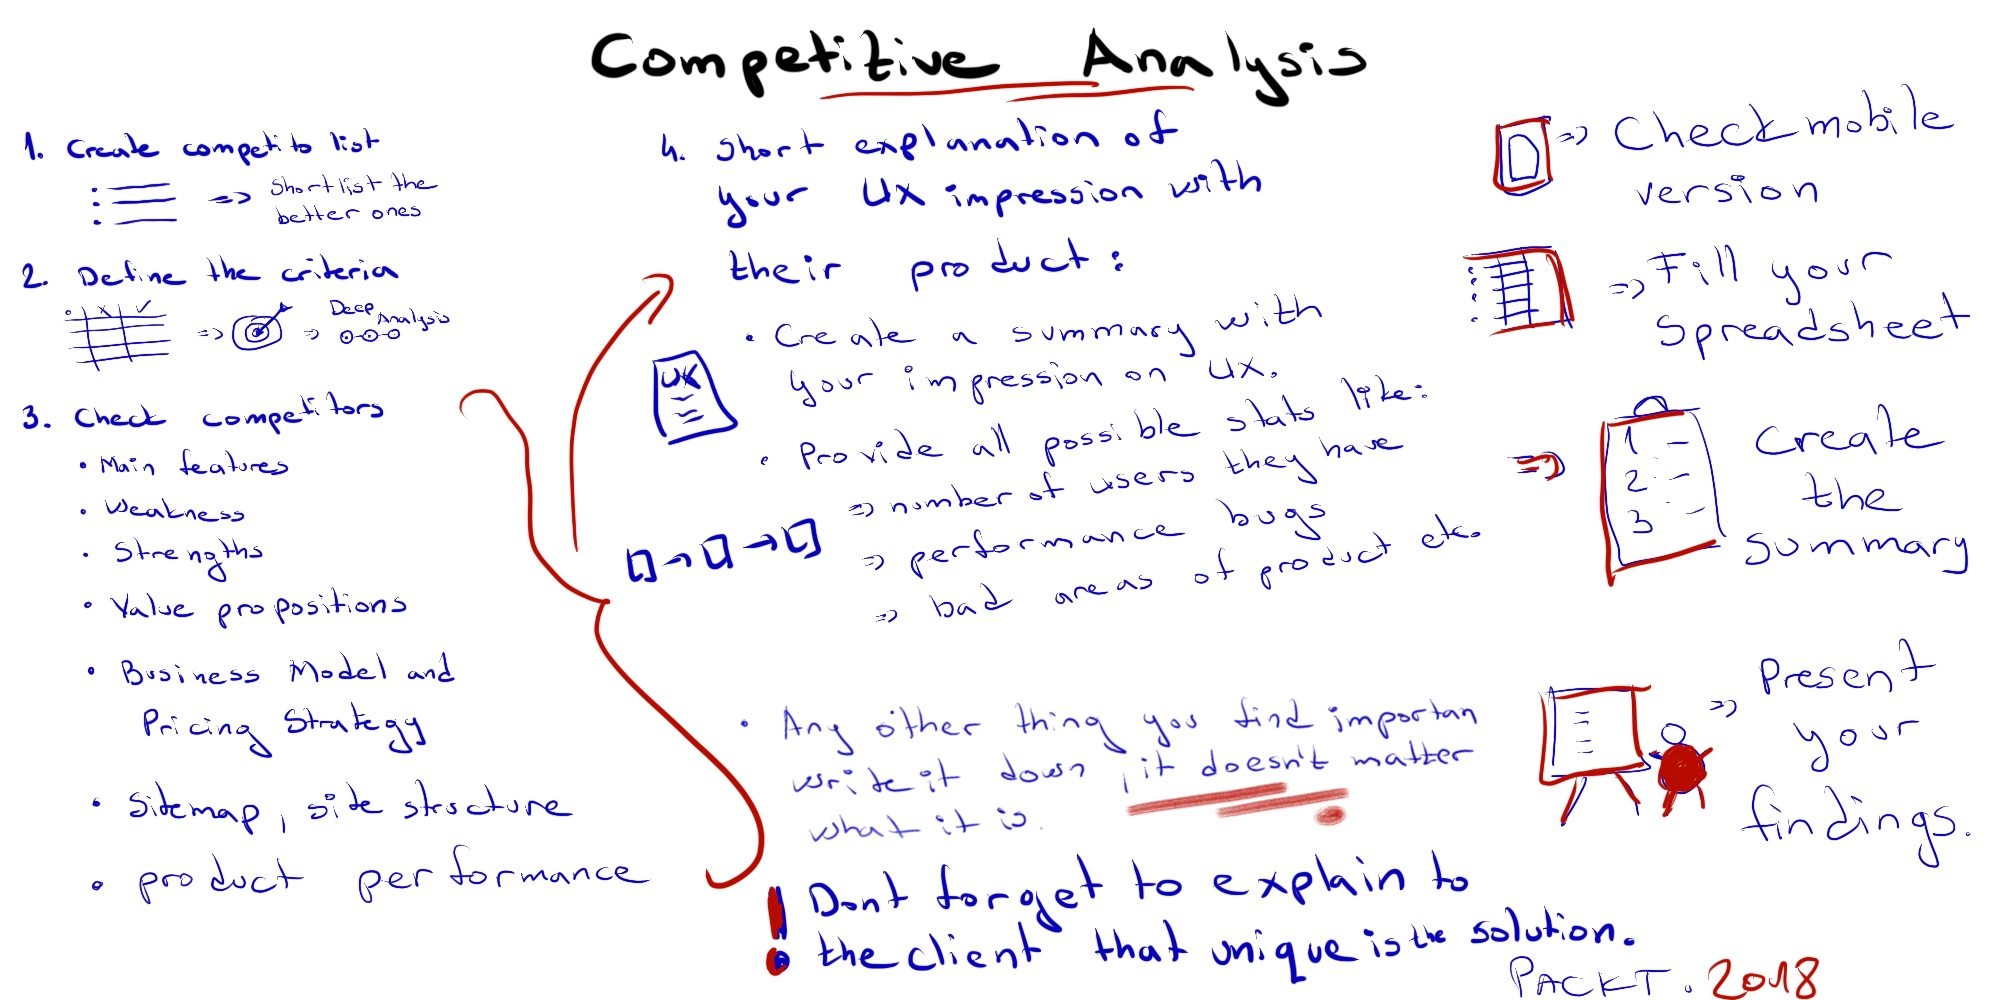 Competitive Analysis
1. Create competito list
Shortlist the
better ones
2. Define the criteria
x ✓
Deep
Analysis
3. Check competitors
• Main features
• Weakness
• Strengths
• Value propositions
• Business Model and
Pricing Strategy
• Sitemap, site structure
• product performance
4. Short explanation of
your UX impression with
their product:
• Create a summary with
your impression on UX.
UX
• Provide all possible stats like:
=> number of users they have
=> performance bugs
=> bad areas of product etc.
• Any other thing you find importan
write it down, it doesn't matter
what it is.
! Dont forget to explain to
the client that unique is the solution.
=> Check mobile
version
=> Fill your
Spreadsheet
=> 1 –
2 –
3 –
Create
the
summary
=> Present
your
findings.
PACKT. 2018